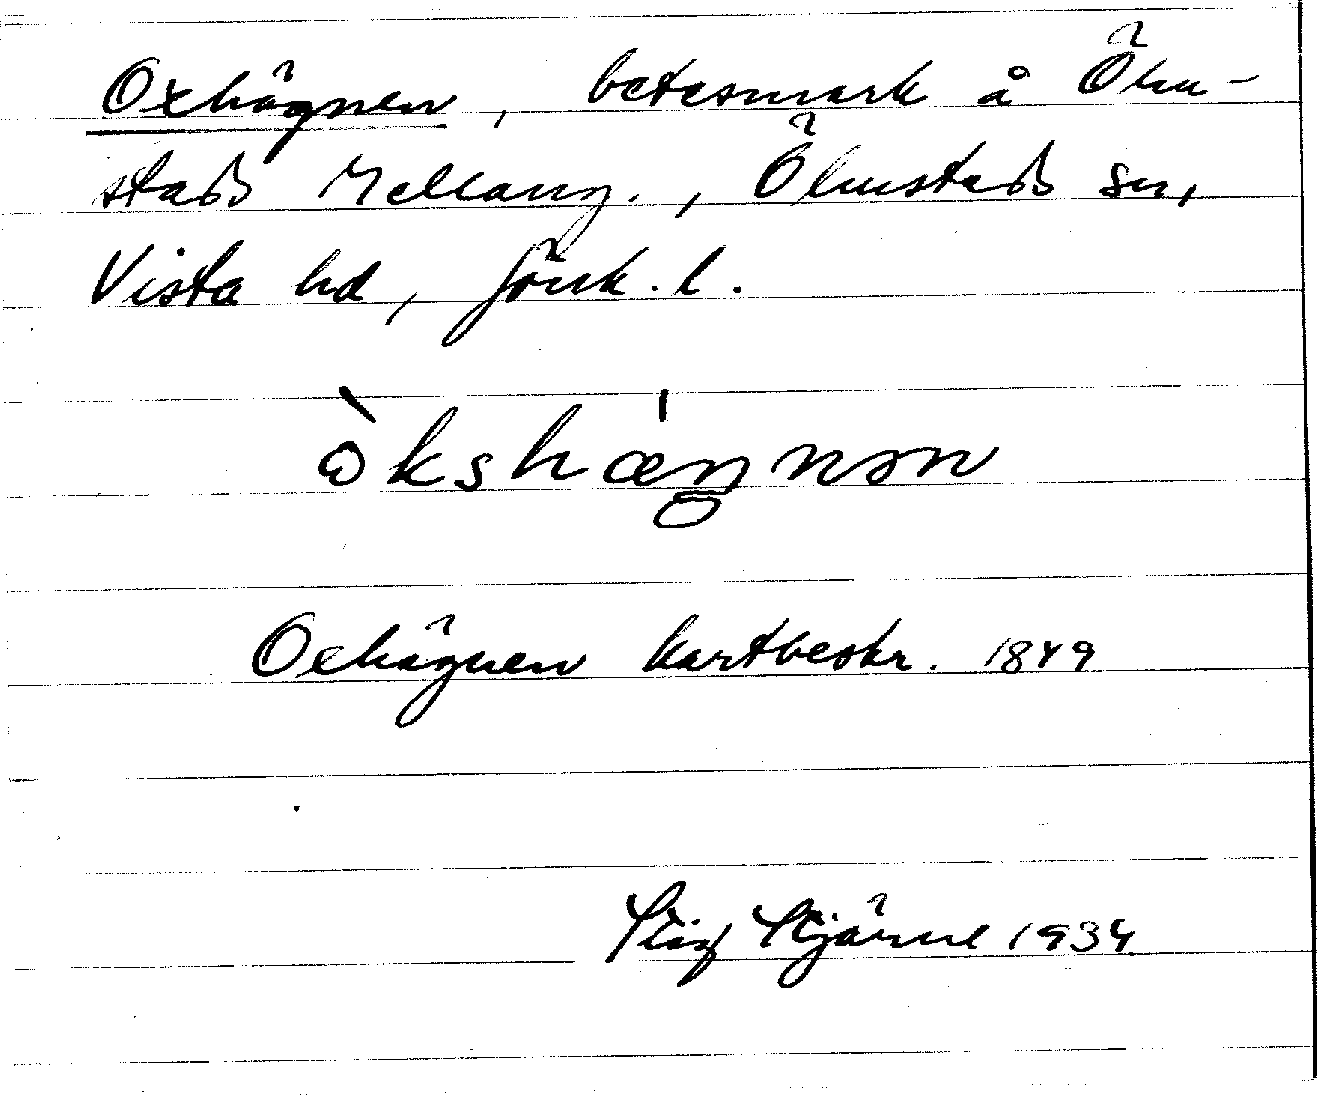 Oxhägnen, betesmark å Ölm-
stads Mellang., Ölmstads sn,
Vista hd, Jönk. l.
òkshæŋnən
Oxhägnen kartbeskr. 1849
Stig Stjärne 1934